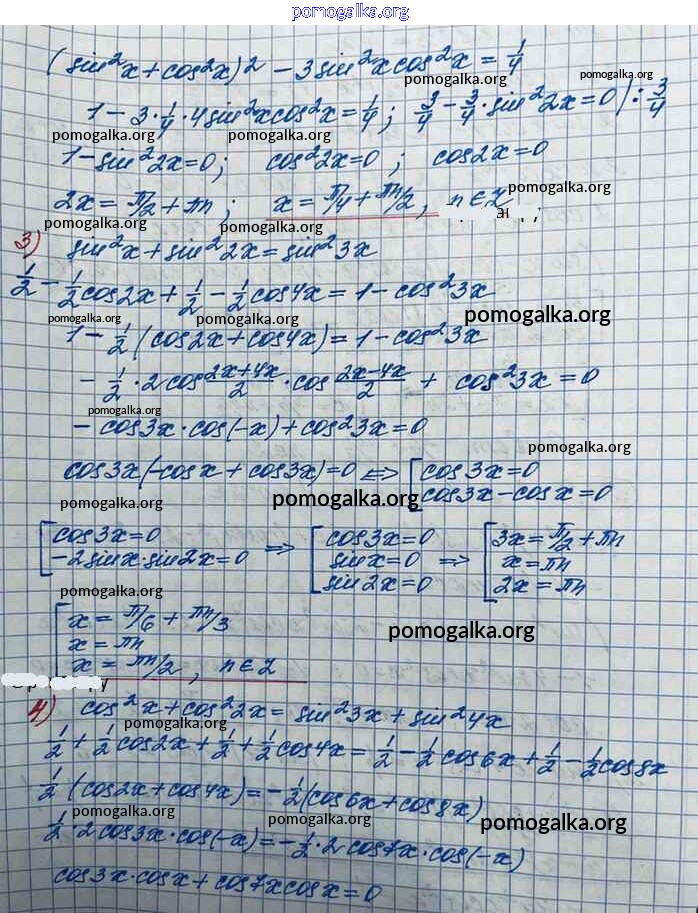 pomogalka.org
(sin²x+cos²x)² − 3sin²xcos²x = 1/4
pomogalka.org pomogalka.org
1 − 3·1/4·4sin²xcos²x = 1/4; 3/4 − 3/4·sin²2x = 0 /: 3/4
pomogalka.org pomogalka.org pomogalka.org
1 − sin²2x = 0; cos²2x = 0; cos2x = 0
pomogalka.org
2x = π/2 + πn; x = π/4 + πn/2, n ∈ Z
pomogalka.org pomogalka.org
3) sin²x + sin²2x = sin²3x
1/2 − 1/2cos2x + 1/2 − 1/2cos4x = 1 − cos²3x
pomogalka.org pomogalka.org pomogalka.org
1 − 1/2(cos2x + cos4x) = 1 − cos²3x
− 1/2·2cos (2x+4x)/2 · cos (2x−4x)/2 + cos²3x = 0
pomogalka.org
− cos3x·cos(−x) + cos²3x = 0
pomogalka.org
cos3x(−cosx + cos3x) = 0 ⟺ [cos3x = 0
cos3x − cosx = 0
pomogalka.org pomogalka.org
[cos3x = 0 ⟹ [cos3x = 0 ⟹ [3x = π/2 + πn
−2sinx·sin2x = 0 sinx = 0 x = πn
sin2x = 0 2x = πn
pomogalka.org
[x = π/6 + πn/3
pomogalka.org
x = πn
x = πn/2, n ∈ Z
4) cos²x + cos²2x = sin²3x + sin²4x
pomogalka.org
1/2 + 1/2cos2x + 1/2 + 1/2cos4x = 1/2 − 1/2cos6x + 1/2 − 1/2cos8x
1/2(cos2x + cos4x) = −1/2(cos6x + cos8x)
pomogalka.org pomogalka.org pomogalka.org
1/2·2cos3x·cos(−x) = −1/2·2cos7x·cos(−x)
cos3x·cosx + cos7xcosx = 0